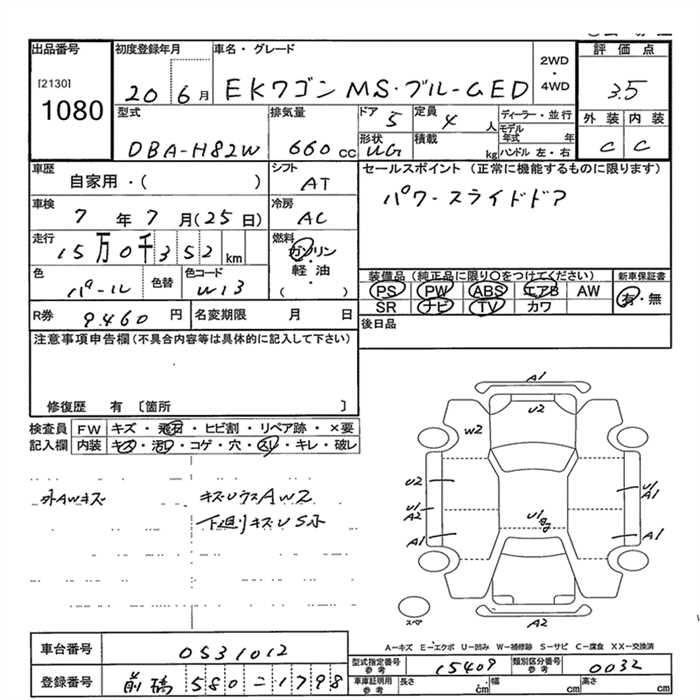 出品番号 初度登録年月 車名・グレード 2WD・4WD 評価点
[2130]
1080 20 6月 EKワゴン MS・ブルームED 3.5
型式 排気量 ドア 5 定員 4人 ディーラー・並行 外装 内装
DBA-H82W 660cc 形状 UG 積載 kg モデル年式 年 ハンドル 左・右 C C
車歴 自家用・( ) シフト AT セールスポイント(正常に機能するものに限ります)
車検 7年7月(25日) 冷房 AC パワースライドドア
走行 15万0千352km 燃料 ガソリン・軽油・( )
色 パール 色替 色コード W13 装備品(純正品に限り○をつけてください) 新車保証書
PS PW ABS エアB AW 有・無
SR ナビ TV カワ
R券 9.460円 名変期限 月 日 後日品
注意事項申告欄(不具合内容等は具体的に記入して下さい)
修復歴 有 〔箇所 〕
検査員 FW キズ・飛石・ヒビ割・リペア跡・×要
記入欄 内装 キズ・汚レ・コゲ・穴・スレ・キレ・破レ
外AWキズ キズUウスAW2
下廻りキズUSホ
A1
U2
W2
U2 U1 A1
U1 A2 U1
A1 A1
A2
スペア
A-キズ E-エクボ U-凹み W-補修跡 S-サビ C-腐食 XX-交換済
車台番号 0531012 型式指定番号 参考 15409 類別区分番号 参考 0032
登録番号 前橋 580 ニ 1798 車庫証明用 参考 長さ cm 幅 cm 高さ cm